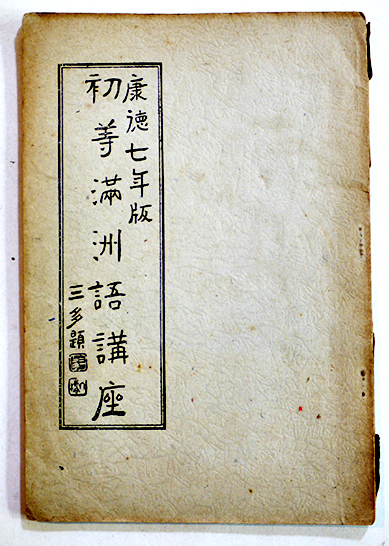 康德七年版
初等滿洲語講座
三多題